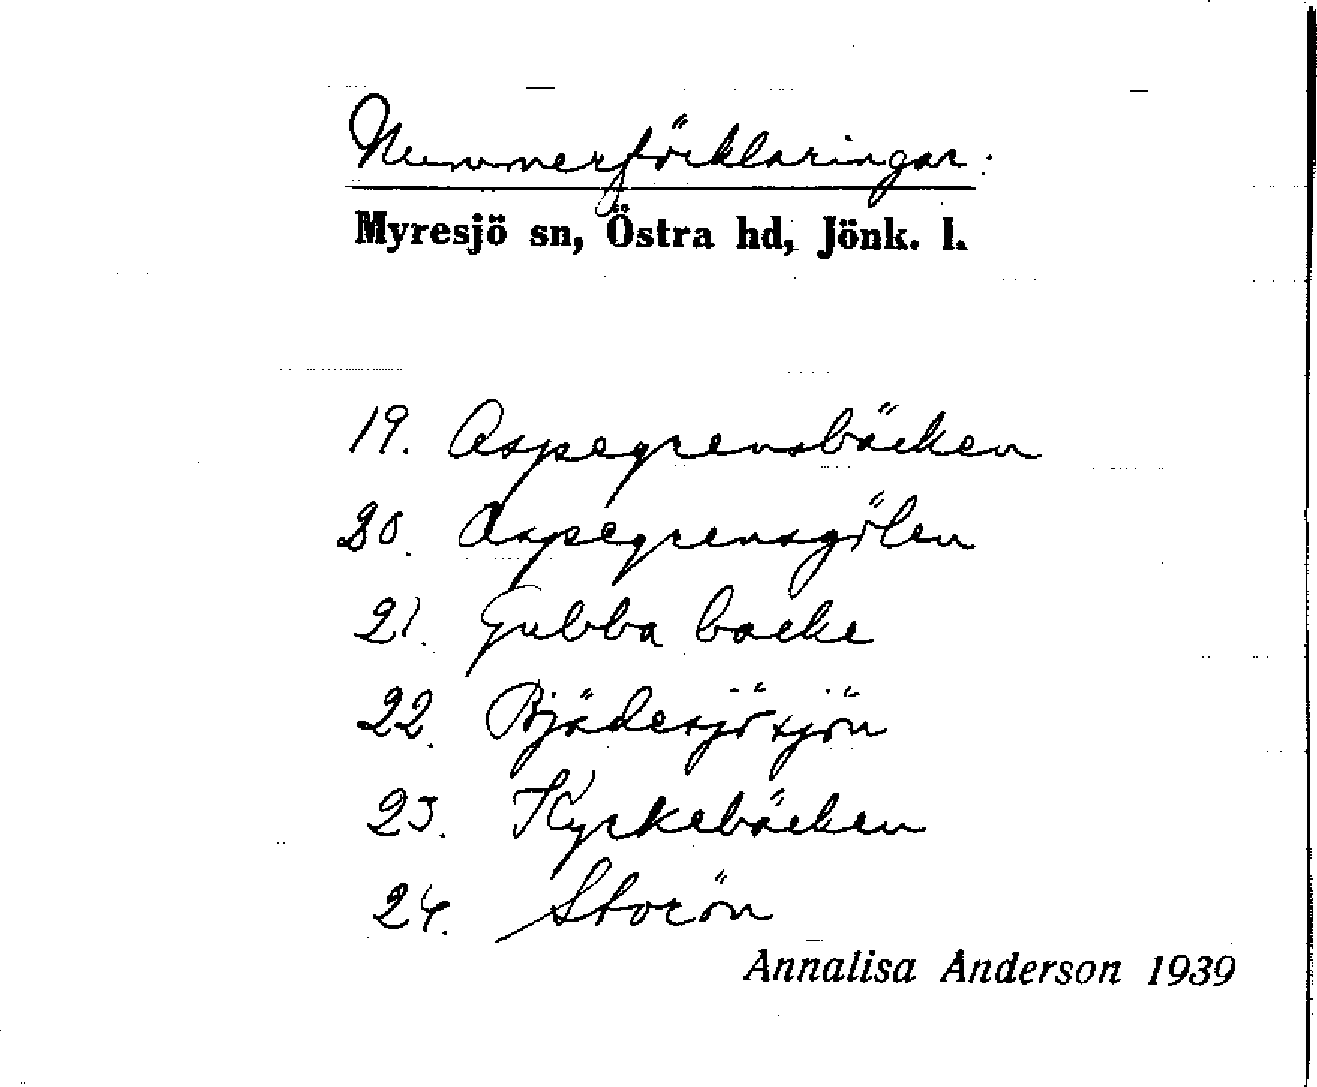 Nummerförklaringar:
Myresjö sn, Östra hd, Jönk. l.
19. Aspegrensbäcken
20. Aspegrensgölen
21. Gubba backe
22. Bjädesjösjön
23. Kyrkebäcken
24. Storön
Annalisa Anderson 1939